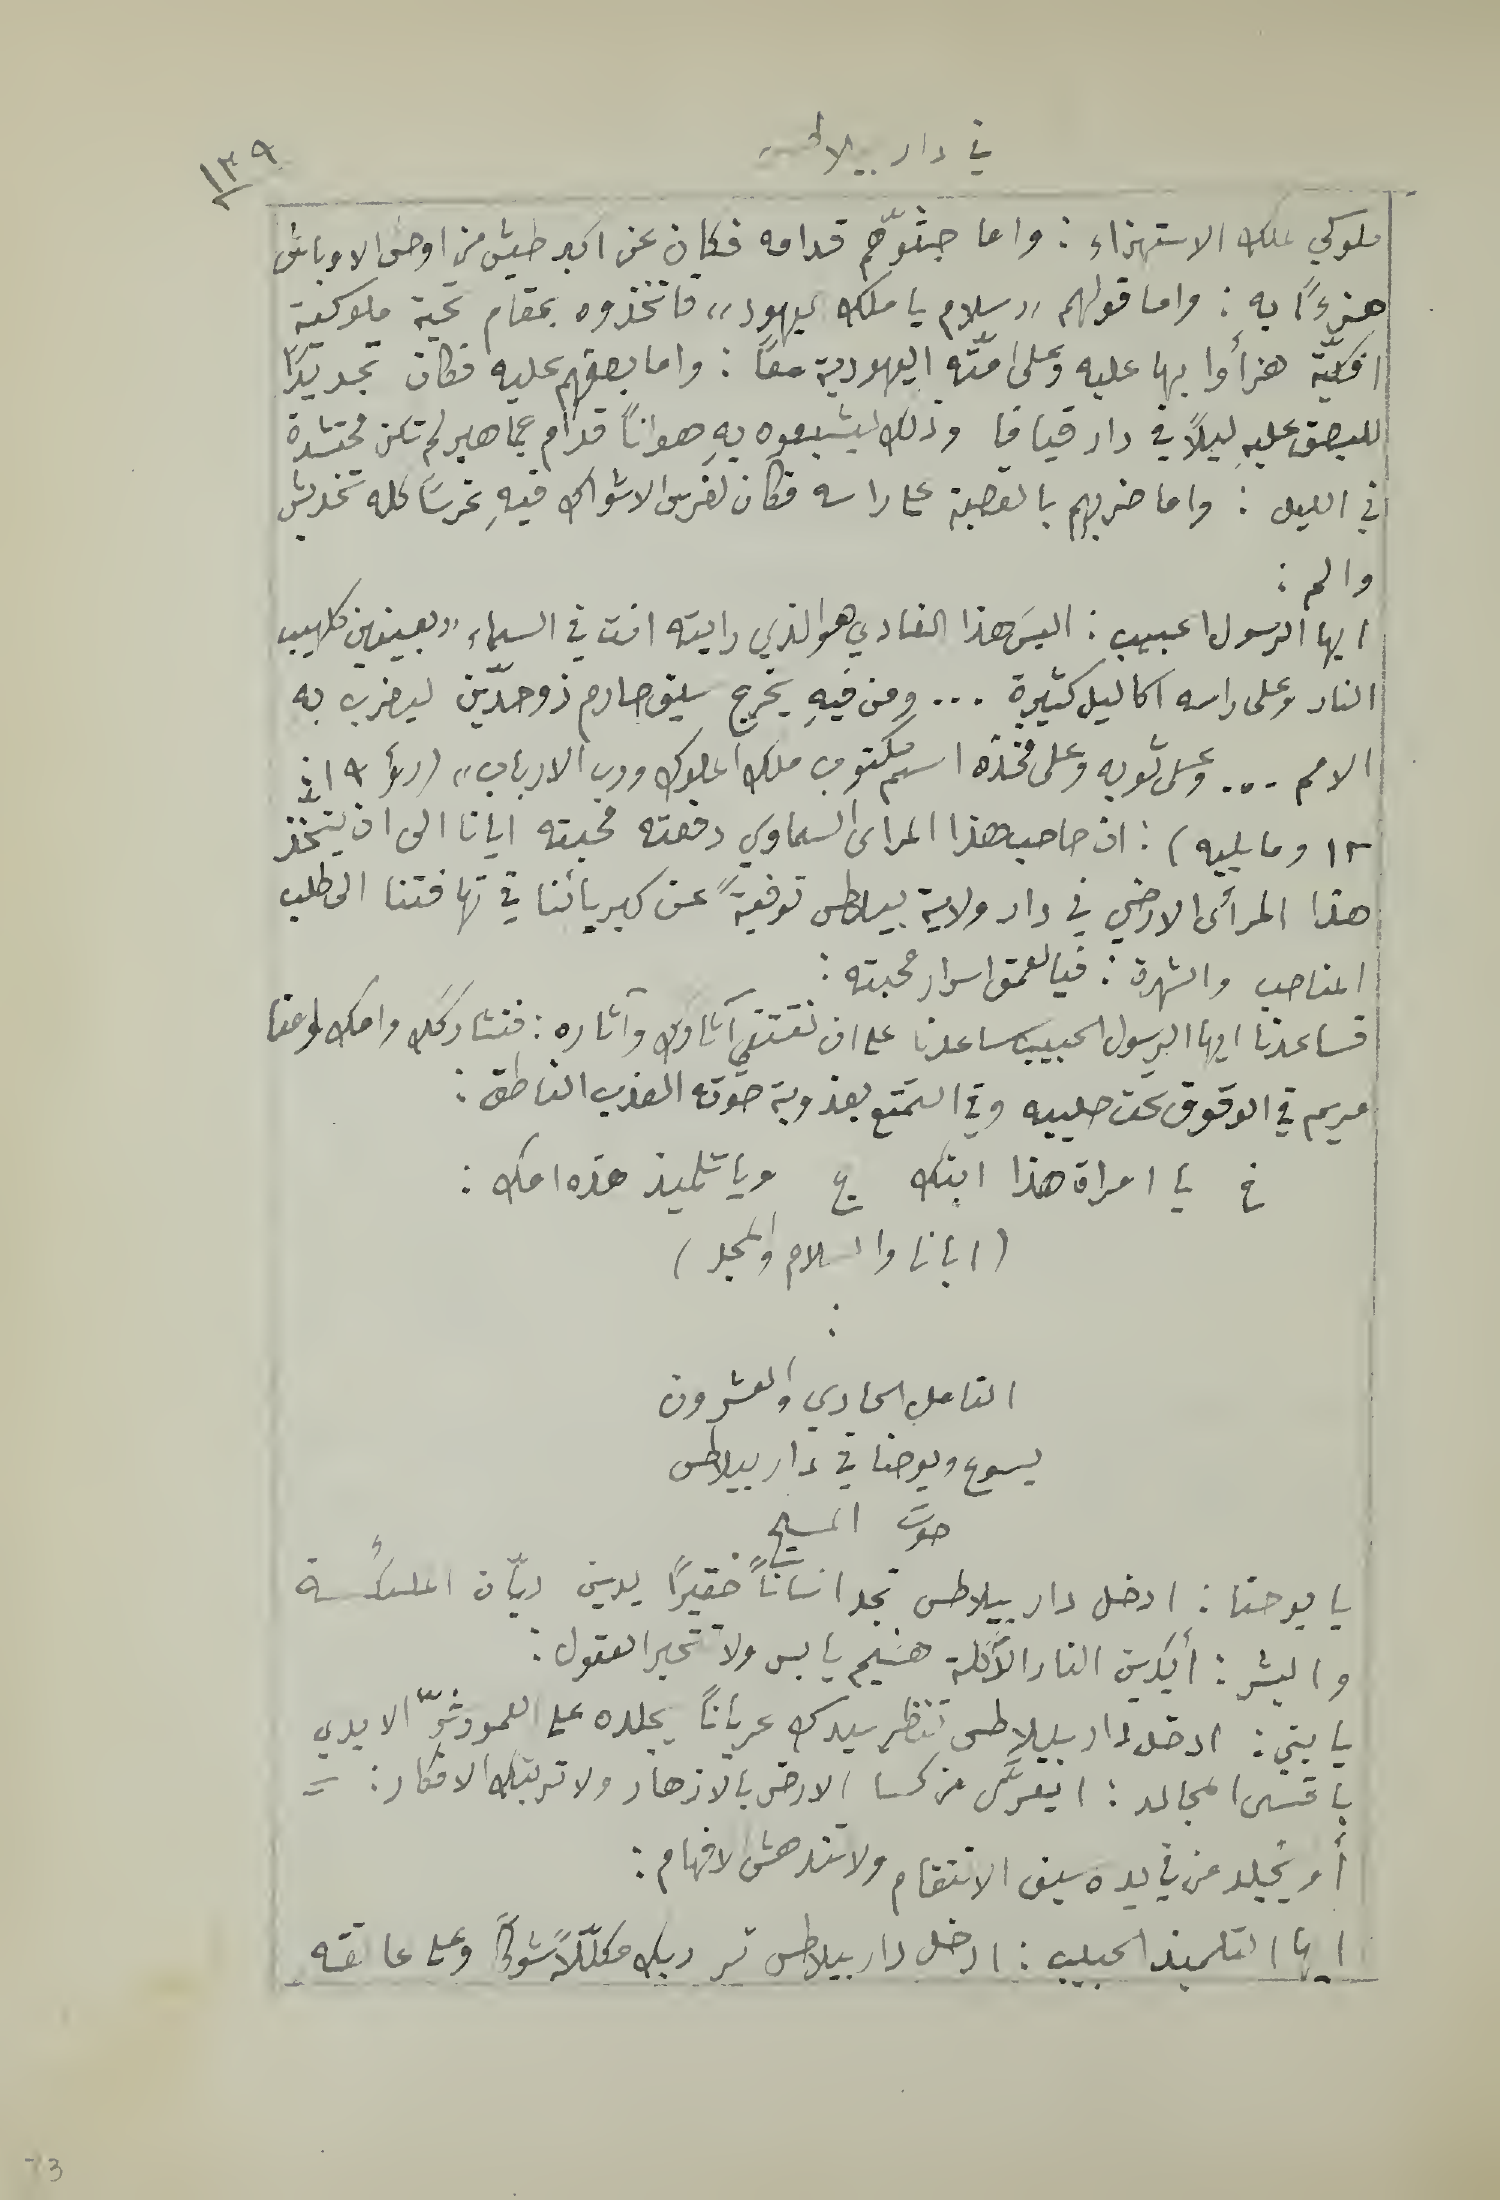 في دار بيلاطس
١٣٩
ملوكي لملك الاستهزاء : واما جثوّهم قدامه فكان عن اكبر طيش من اوحش الاوباش
هزءًا به : واما قولهم „سلام يا ملك اليهود„ فاتخذوه بمقام تحية ملوكية
افكيّة هزأوا بها عليه وعلى امّته اليهودية معًا : واما بصقهم عليه فكان تجديدًا
للبصق عليهِ ليلًا في دار قيافا وذلك ليشبعوه بهِ هوانًا قدام جماهير لم تكن محتشدة
في الليل : واما ضربهم بالقصبة على راسه فكان لغرس الاشواك فيهِ غرسًا كله تخديش
والم :
ايها الرسول الحبيب : اليسَ هذا الفادي هو الذي رايته انت في السماء „بعينين كلهيب
النار وعلى راسه اكاليل كثيرة ... ومن فيهِ يخرج سيف صارم ذو حدّين ليضرب به
الامم ... وعلى ثوبه وعلى فخذه اسم مكتوب ملك الملوك ورب الارباب„ (رؤ ١٩ :
١٢ وما يليه) : ان صاحب هذا المرأى السماوي دفعته محبته ايانا الى ان يتخذ
هذا المرأى الارضي في دار ولاية بيلاطس توفيةً عن كبريائنا في تهافتنا الى طلب
المناصب والشهرة : فيا لعمق اسرار محبته :
فساعدنا ايها الرسول الحبيب ساعدنا على ان نقتفي آثارك وآثاره : فنشاركك وامك وامنا
مريم في الوقوف تحت صليبه وفي التمتع بعذوبة صوته العذب الناطق :
خ يا امراة هذا ابنك ج ويا تلميذ هذه امك :
(ابانا والسلام والمجد)
:
التامل الحادي والعشرون
يسوع ويوحنا في دار بيلاطس
صوت المسيح
يا يوحنا : ادخل دار بيلاطس تجد انسانًا حقيرًا يدين ديّان الملائكة
والبشر : أيدين النار الآكلة هشيم يابس ولا تتحير العقول :
يا بني : ادخل دار بيلاطس تنظر سيدك عريانًا يجلده على العمود شرّ الايدي
باقسى المجالد : ايعرّى من كسا الارض بالازهار ولا ترتبك الافكار : =
أو يُجلد من في يده سيف الانتقام ولا تندهش الافهام :
ايها التلميذ الحبيب : ادخل دار بيلاطس تر ربك مكلّلًا شوكًا وعلى عاتقه